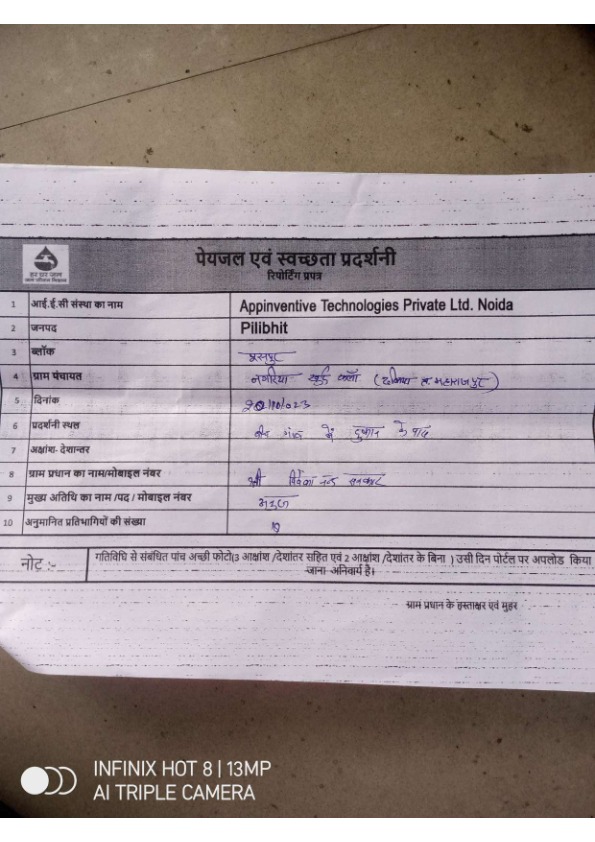 हर घर जल
जल जीवन मिशन
पेयजल एवं स्वच्छता प्रदर्शनी
रिपोर्टिंग प्रपत्र
1 आई.ई.सी संस्था का नाम Appinventive Technologies Private Ltd. Noida
2 जनपद Pilibhit
3 ब्लॉक
4 ग्राम पंचायत नगरिया खुर्द कलॉ
5 दिनांक
6 प्रदर्शनी स्थल में दुकान के पास
7 अक्षांश- देशान्तर
8 ग्राम प्रधान का नाम/मोबाइल नंबर श्री
9 मुख्य अतिथि का नाम /पद / मोबाइल नंबर
10 अनुमानित प्रतिभागियों की संख्या
नोट :- गतिविधि से संबंधित पांच अच्छी फोटो(3 आक्षांश /देशांतर सहित एवं 2 आक्षांश /देशांतर के बिना ) उसी दिन पोर्टल पर अपलोड किया
जाना अनिवार्य है।
ग्राम प्रधान के हस्ताक्षर एवं मुहर
INFINIX HOT 8 | 13MP
AI TRIPLE CAMERA